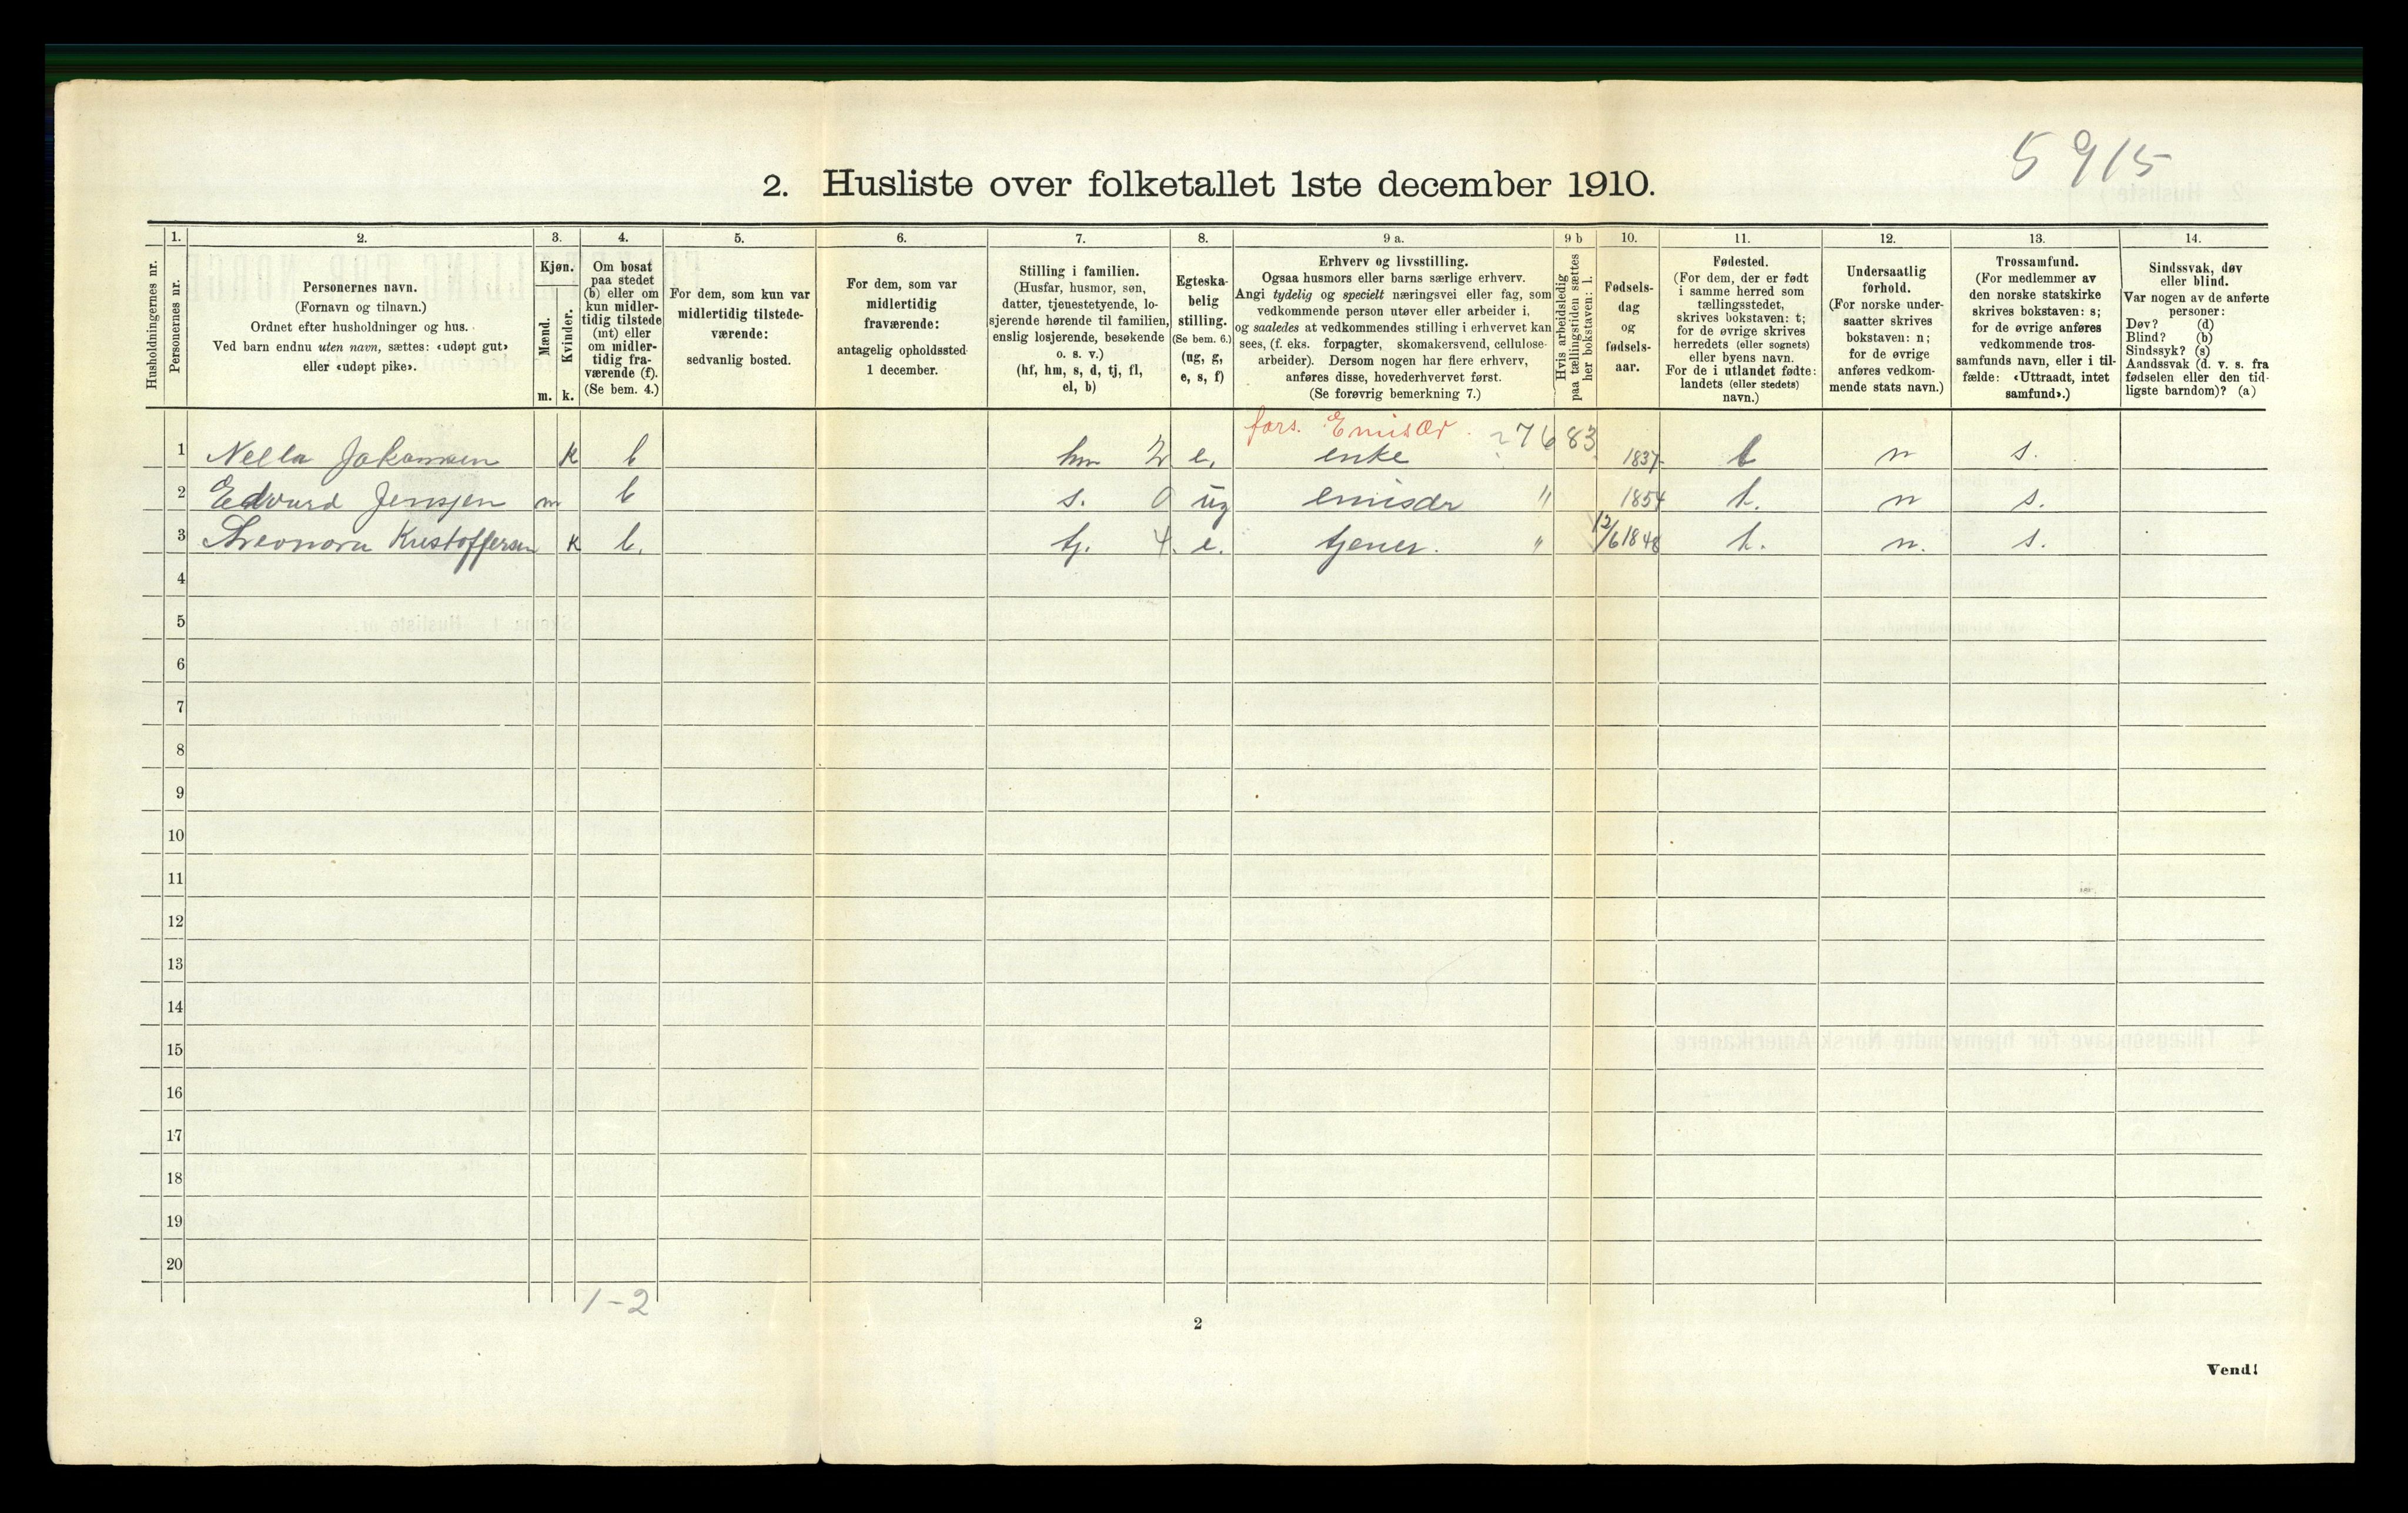 5915
2. Husliste over folketallet 1ste december 1910.
Husholdningernes nr.
1.
Personernes nr.
2.
Personernes navn.
(Fornavn og tilnavn.)
Ordnet efter husholdninger og hus.
Ved barn endnu uten navn, sættes: «udøpt gut»
eller «udøpt pike».
3.
Kjøn.
Mænd.
Kvinder.
m. k.
4.
Om bosat
paa stedet
(b) eller om
kun midler-
tidig tilstede
(mt) eller
om midler-
tidig fra-
værende (f).
(Se bem. 4.)
5.
For dem, som kun var
midlertidig tilstede-
værende:
sedvanlig bosted.
6.
For dem, som var
midlertidig
fraværende:
antagelig opholdssted
1 december.
7.
Stilling i familien.
(Husfar, husmor, søn,
datter, tjenestetyende, lo-
sjerende hørende til familien,
enslig losjerende, besøkende
o. s. v.)
(hf, hm, s, d, tj, fl,
el, b)
8.
Egteska-
belig
stilling.
(Se bem. 6.)
(ug, g,
e, s, f)
9 a.
Erhverv og livsstilling.
Ogsaa husmors eller barns særlige erhverv.
Angi tydelig og specielt næringsvei eller fag, som
vedkommende person utøver eller arbeider i,
og saaledes at vedkommendes stilling i erhvervet kan
sees, (f. eks. forpagter, skomakersvend, cellulose-
arbeider). Dersom nogen har flere erhverv,
anføres disse, hovederhvervet først.
(Se forøvrig bemerkning 7.)
9 b
Hvis arbeidsledig
paa tællingstiden sættes
her bokstaven: l.
10.
Fødsels-
dag
og
fødsels-
aar.
11.
Fødested.
(For dem, der er født
i samme herred som
tællingsstedet,
skrives bokstaven: t;
for de øvrige skrives
herredets (eller sognets)
eller byens navn.
For de i utlandet fødte:
landets (eller stedets)
navn.)
12.
Undersaatlig
forhold.
(For norske under-
saatter skrives
bokstaven: n;
for de øvrige
anføres vedkom-
mende stats navn.)
13.
Trossamfund.
(For medlemmer av
den norske statskirke
skrives bokstaven: s;
for de øvrige anføres
vedkommende tros-
samfunds navn, eller i til-
fælde: «Uttraadt, intet
samfund».)
14.
Sindssvak, døv
eller blind.
Var nogen av de anførte
personer:
Døv? (d)
Blind? (b)
Sindssyk? (s)
Aandssvak (d. v. s. fra
fødselen eller den tid-
ligste barndom)? (a)
fors. Emisær. 7683
1 Nella Jakobsen k b hm e. enke 1837 t n s.
2 Edvard Jensen m b s. 0 ug emisær " 1854 t. n s.
3 Kristoffersen k b. tj. 4. e. tjener. " 12/6 1848 t. n. s.
4
5
6
7
8
9
10
11
12
13
14
15
16
17
18
19
20
1-2
2
Vend!